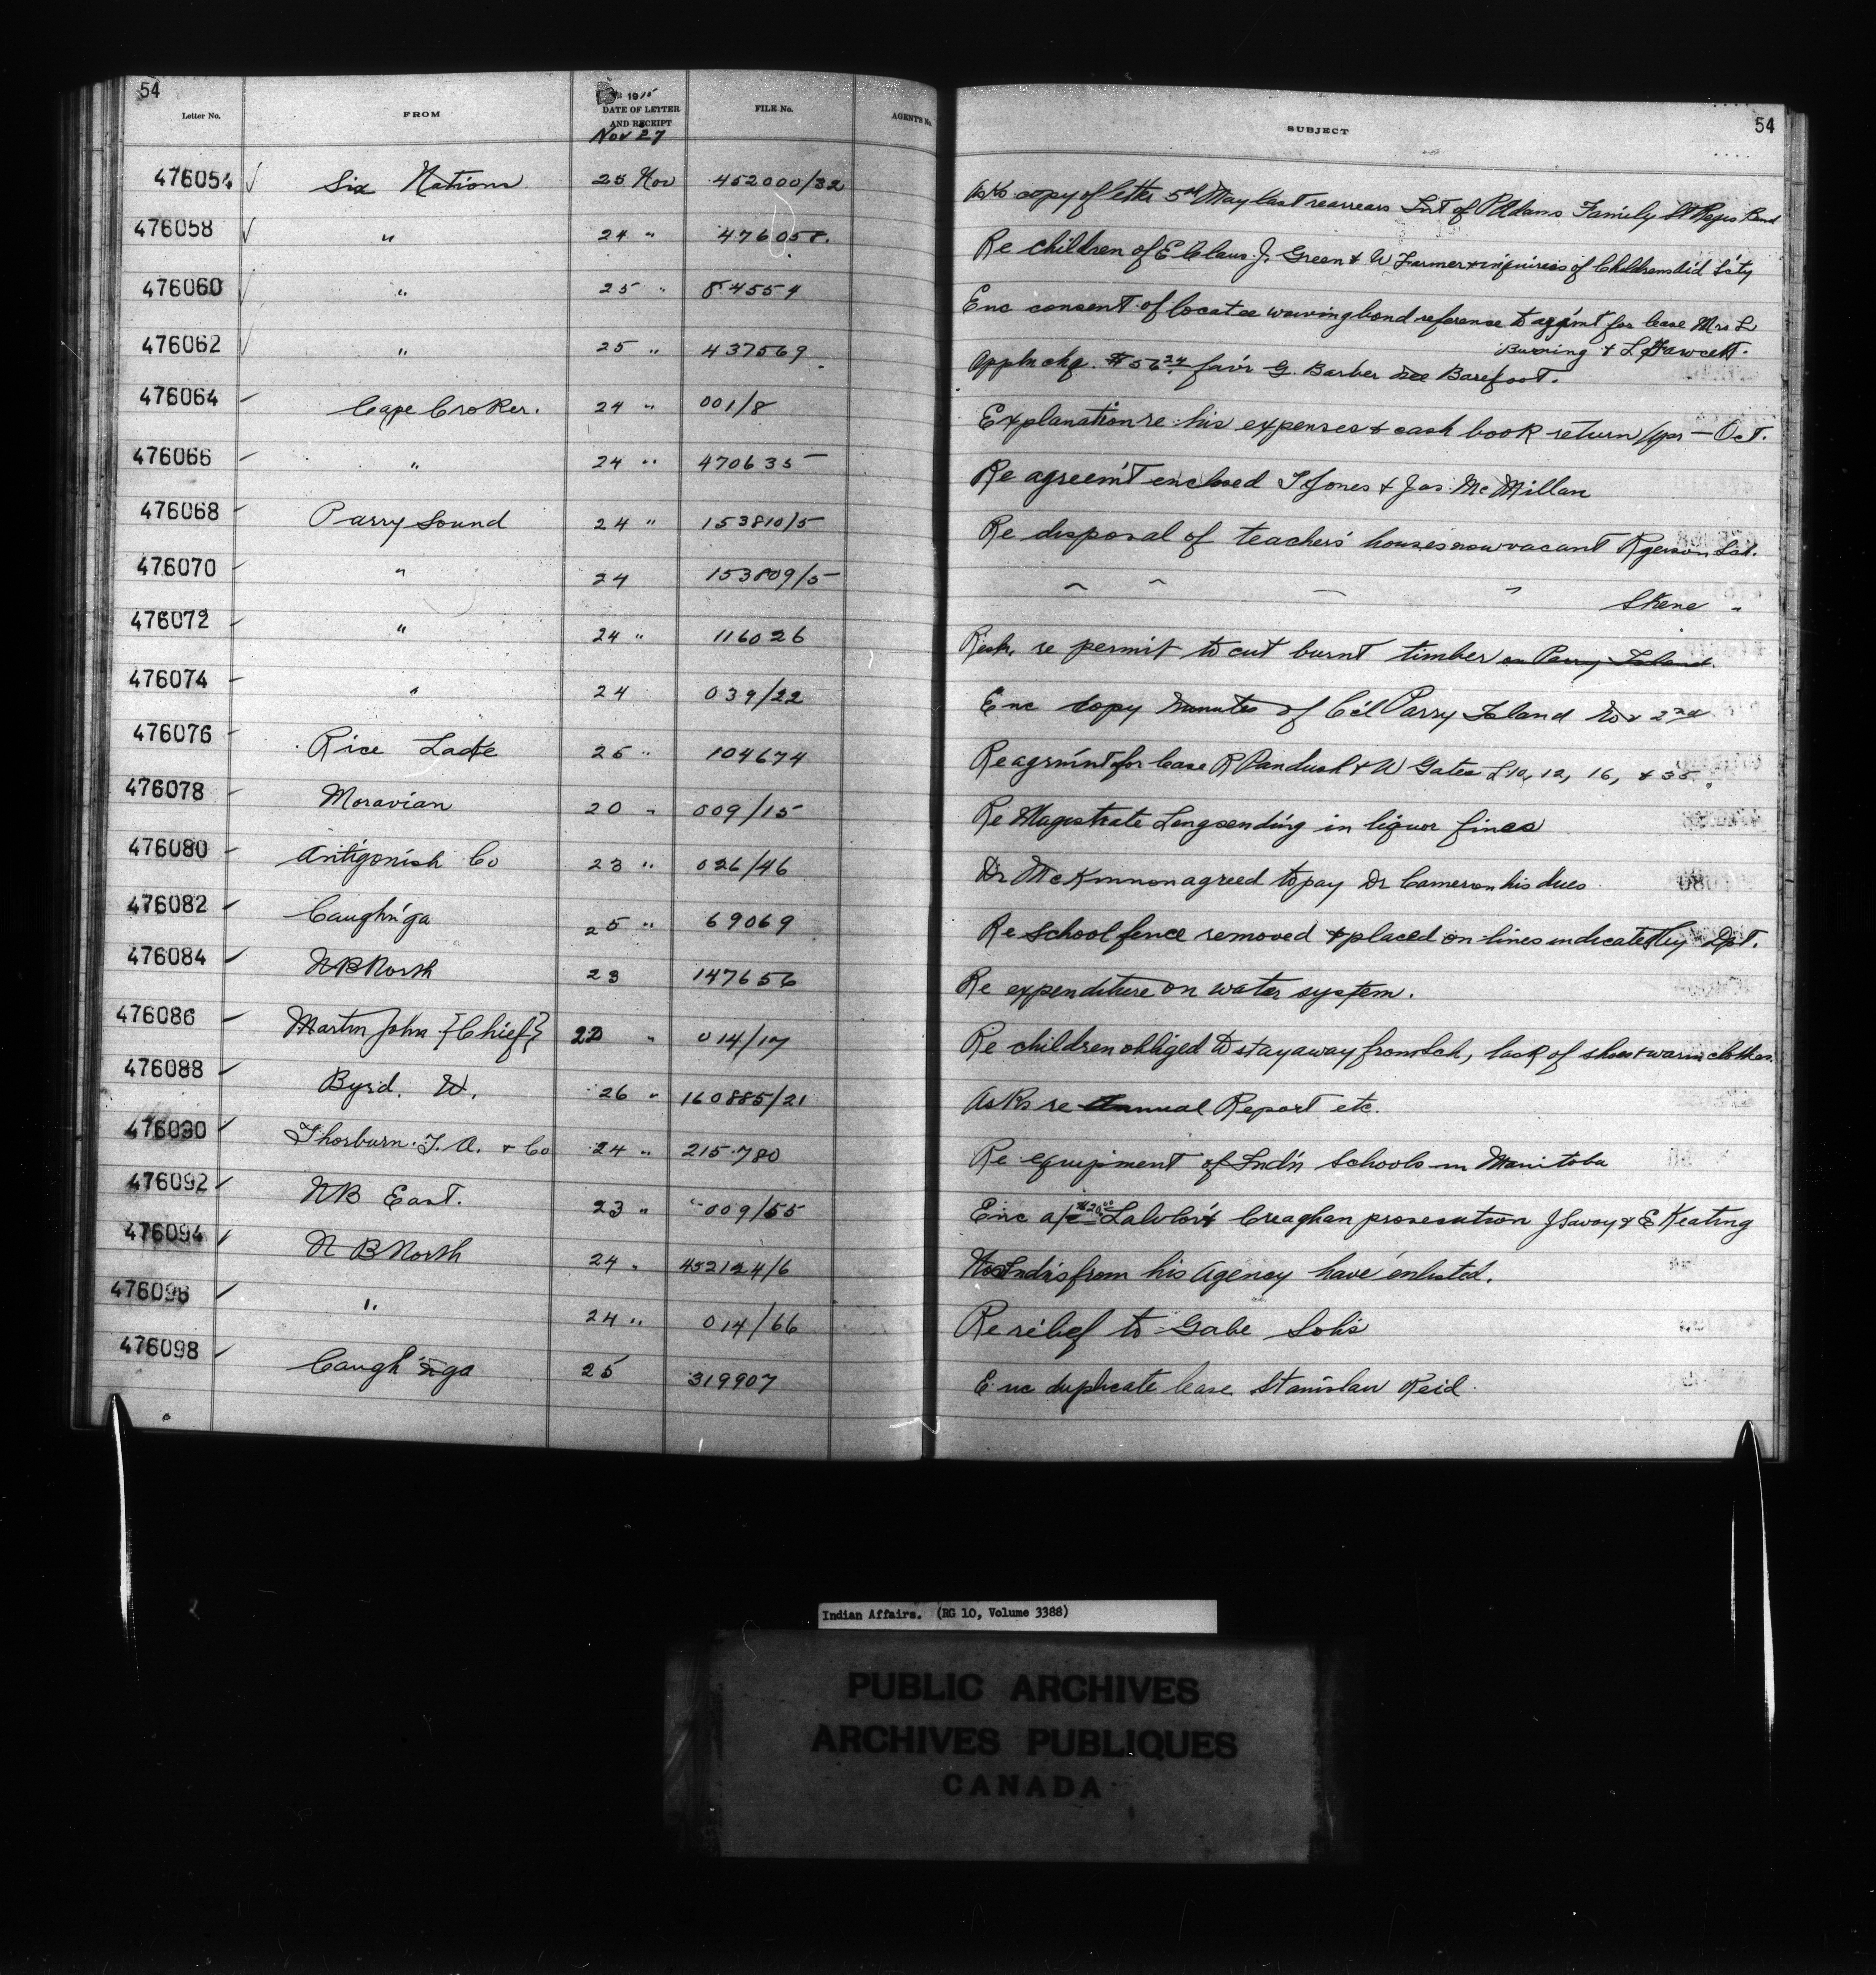 54
Letter No. FROM 1915 DATE OF LETTER AND RECEIPT FILE No. AGENT'S No. SUBJECT 54
Nov 27
476054 ✓ Six Nations 25 Nov 452000/32 Asks copy of letter 5th May last re arrears Int of P Adams Family St Regis Band
476058 ✓ " 24 " 476058. Re children of E Claus. J. Green & W Farmer & inquiries of Childrens Aid S'c'ty
476060 " 25 " 84554 Enc consent of locatee waiving bond reference to agr'mt for lease Mrs L
Burning & L Fawcett.
476062 ✓ " 25 " 437569 Appln chq. $56.24 fav'r G. Barber nee Barefoot.
476064 ✓ Cape Croker. 24 " 001/8 Explanation re his expenses & cash book return / Apr — Oct.
476066 ✓ " 24 " 470635 Re agreem't enclosed T Jones & Jas. McMillan
476068 ✓ Parry Sound 24 " 153810/5 Re disposal of teachers' houses now vacant Ryerson Sch.
476070 ✓ " 24 153809/5 " " " " Skene "
476072 ✓ " 24 " 116026 Resk. re permit to cut burnt timber on Parry Island.
476074 ✓ " 24 039/22 Enc copy minutes of C'cl Parry Island Nov 2nd
476076 ✓ Rice Lake 25 " 104674 Re agrm'nt for lease R Pandush & W Gates L 10, 12, 16, & 35.
476078 ✓ Moravian 20 " 009/15 Re Magistrate Long sending in liquor fines
476080 ✓ Antigonish Co 23 " 026/46 Dr McKinnon agreed to pay Dr Cameron his dues
476082 ✓ Caughn'ga 25 " 69069 Re School fence removed & placed on lines indicated by Dpt.
476084 ✓ N B North 23 147656 Re expenditure on water system.
476086 ✓ Martin John {Chief} 22 " 014/17 Re children obliged to stay away from Sch, lack of shoes & warm clothes.
476088 ✓ Byrd. W. 26 " 160885/21 Asks re Annual Report etc.
476090 ✓ Thorburn. T. A. & Co 24 " 215780 Re equipment of Ind'n Schools in Manitoba
476092 ✓ N B East. 23 " 009/55 Enc a/c $20.00 Lawlor & Creaghan prosecution J Savoy & E Keating
476094 ✓ N B North 24 " 452124/6 No Ind'ns from his Agency have enlisted.
476096 ✓ " 24 " 014/66 Re relief to Gabe Solis
476098 ✓ Caugh'nga 25 319907 Enc duplicate lease Stanislaw Reid
Indian Affairs. (RG 10, Volume 3388)
PUBLIC ARCHIVES
ARCHIVES PUBLIQUES
CANADA